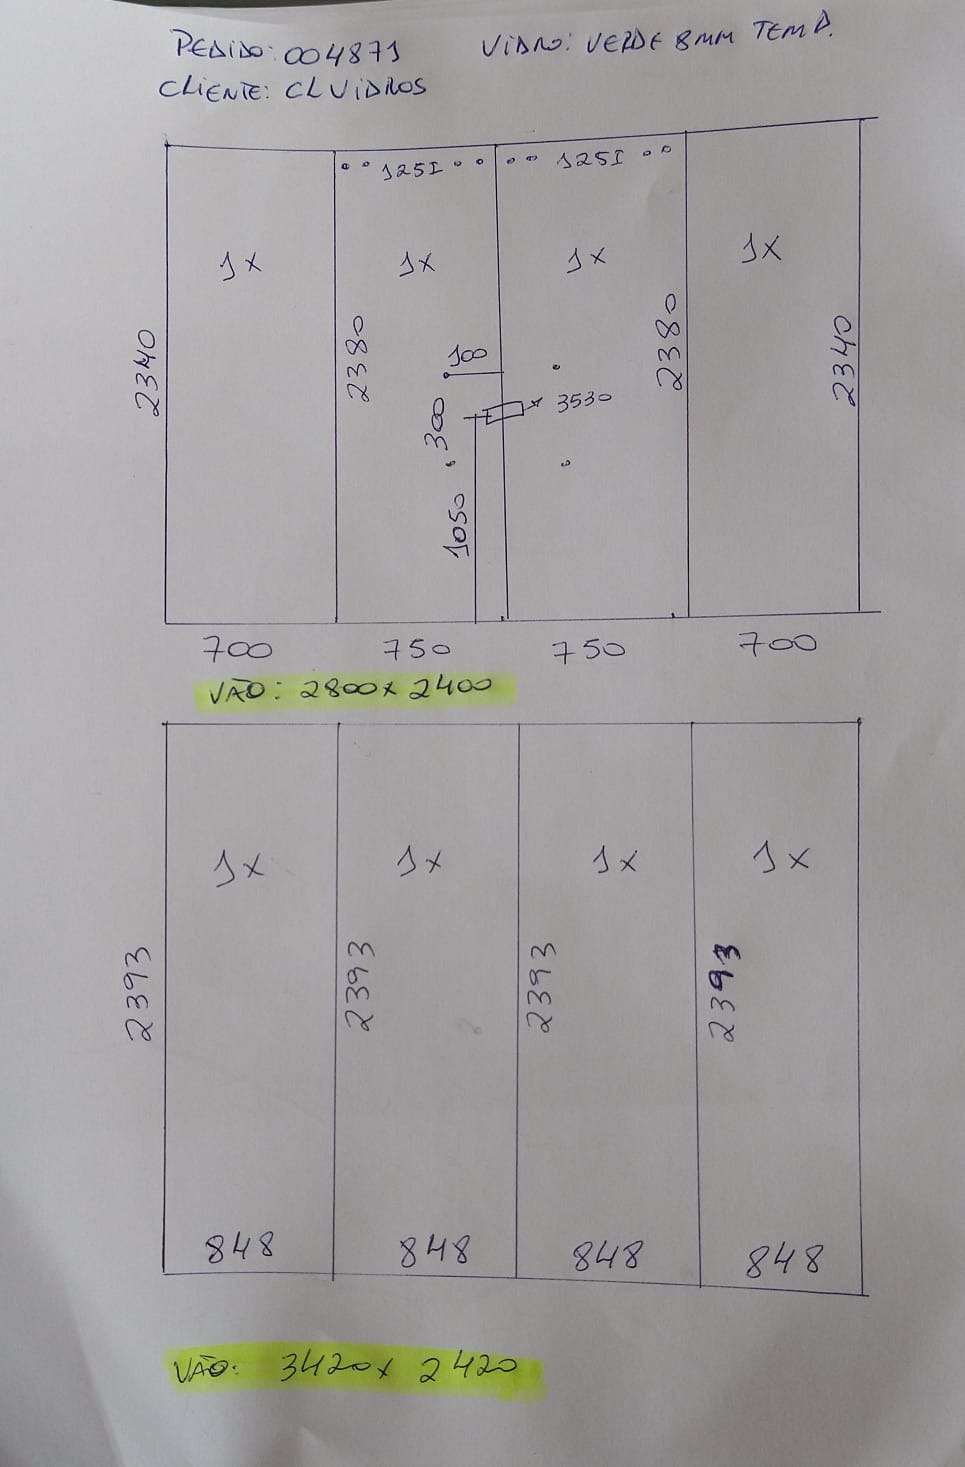 PEDIDO: 004871 VIDRO: VERDE 8MM TEMP.
CLIENTE: CL VIDROS
1251 1251
1x 1x 1x 1x
2340 2380 2380 2340
100
3530
300
1050
700 750 750 700
VÃO: 2800x2400
1x 1x 1x 1x
2393 2393 2393 2393
848 848 848 848
VÃO: 3420x2420